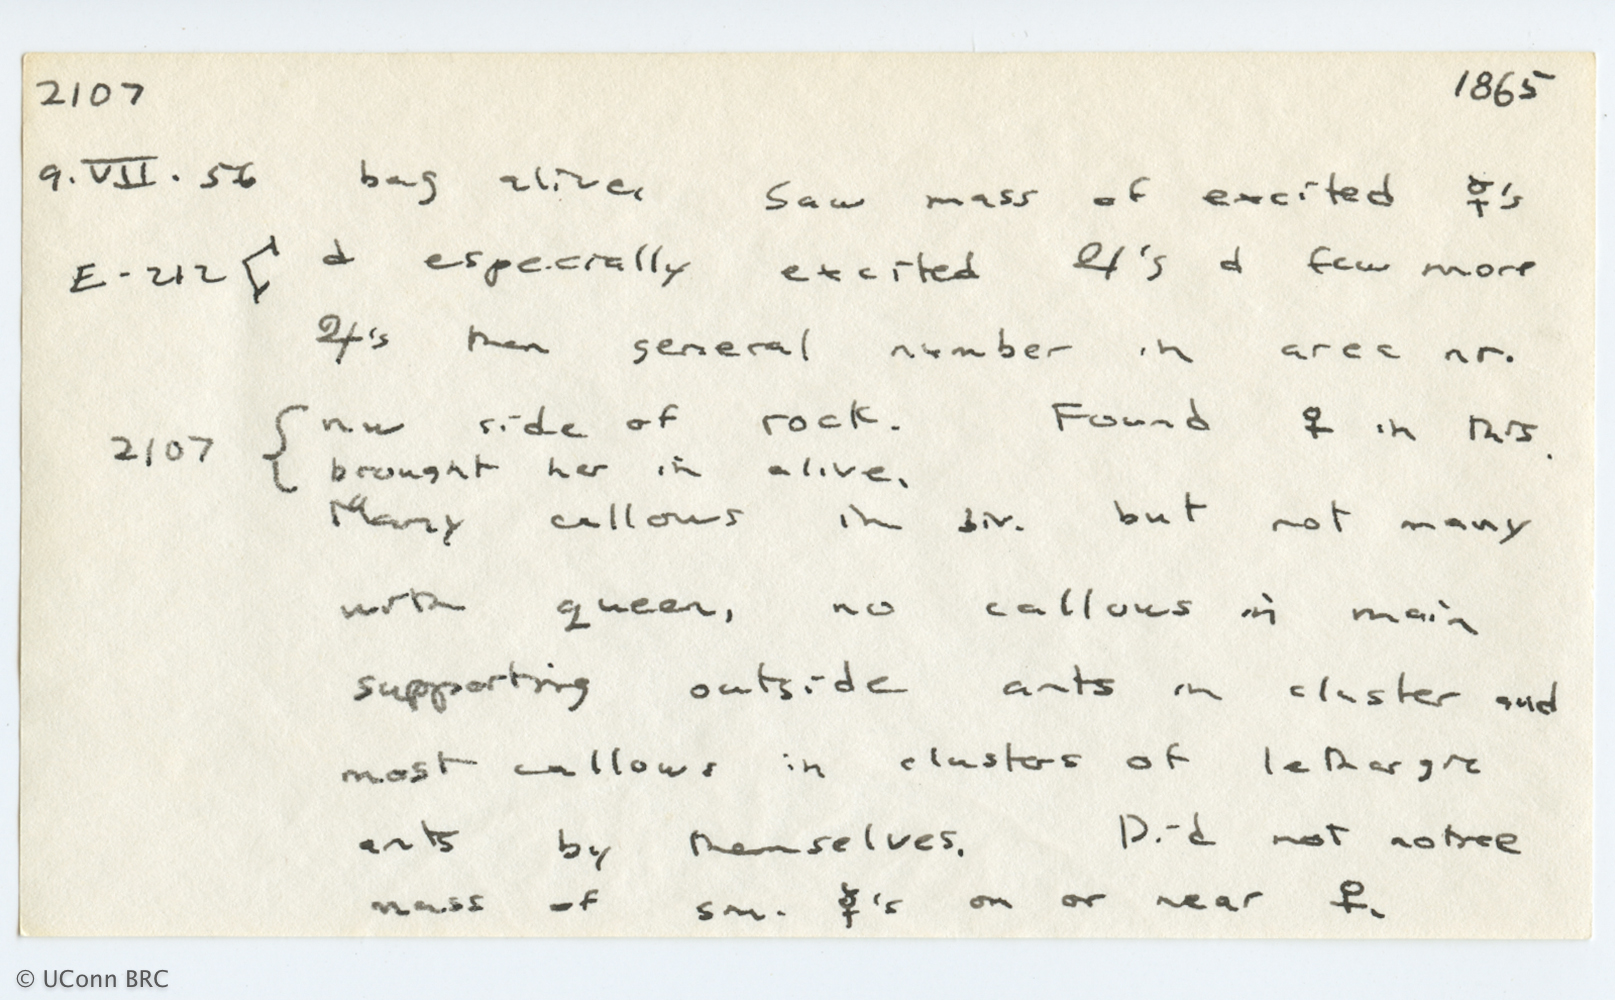 2107 1865
9.VII.56 bag alive. Saw mass of excited ☿'s
E-212 { & especially excited ♃'s & few more
♃'s then general number in area nr.
2107 { nw side of rock. Found ♀ in this.
brought her in alive.
Many callows in biv. but not many
with queen, no callows in main
supporting outside ants in cluster and
most callows in clusters of lethargic
ants by themselves. Did not notice
mass of sm. ☿'s on or near ♀.
© UConn BRC